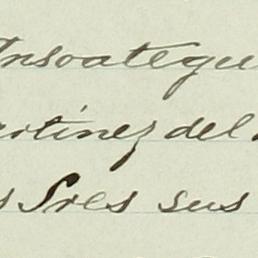 Insoategu
artinez del
s Sres sus